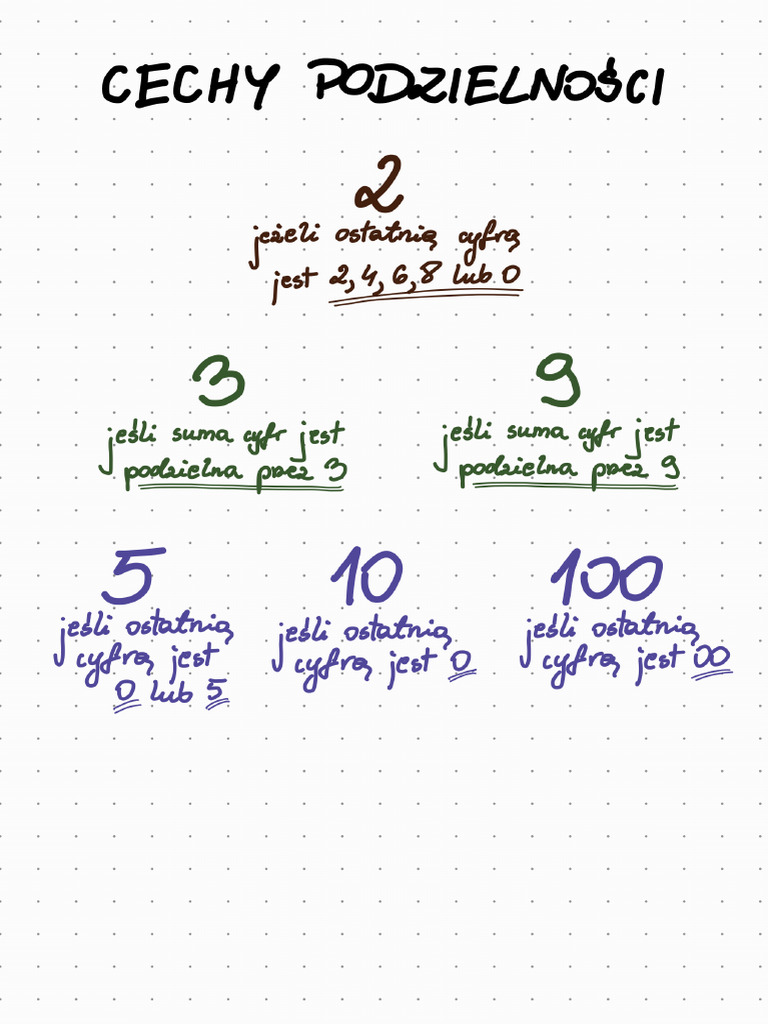 CECHY PODZIELNOŚCI
2
jeżeli ostatnią cyfrą
jest 2, 4, 6, 8 lub 0
3
jeśli suma cyfr jest
podzielna przez 3
9
jeśli suma cyfr jest
podzielna przez 9
5
jeśli ostatnią
cyfrą jest
0 lub 5
10
jeśli ostatnią
cyfrą jest 0
100
jeśli ostatnią
cyfrą jest 00